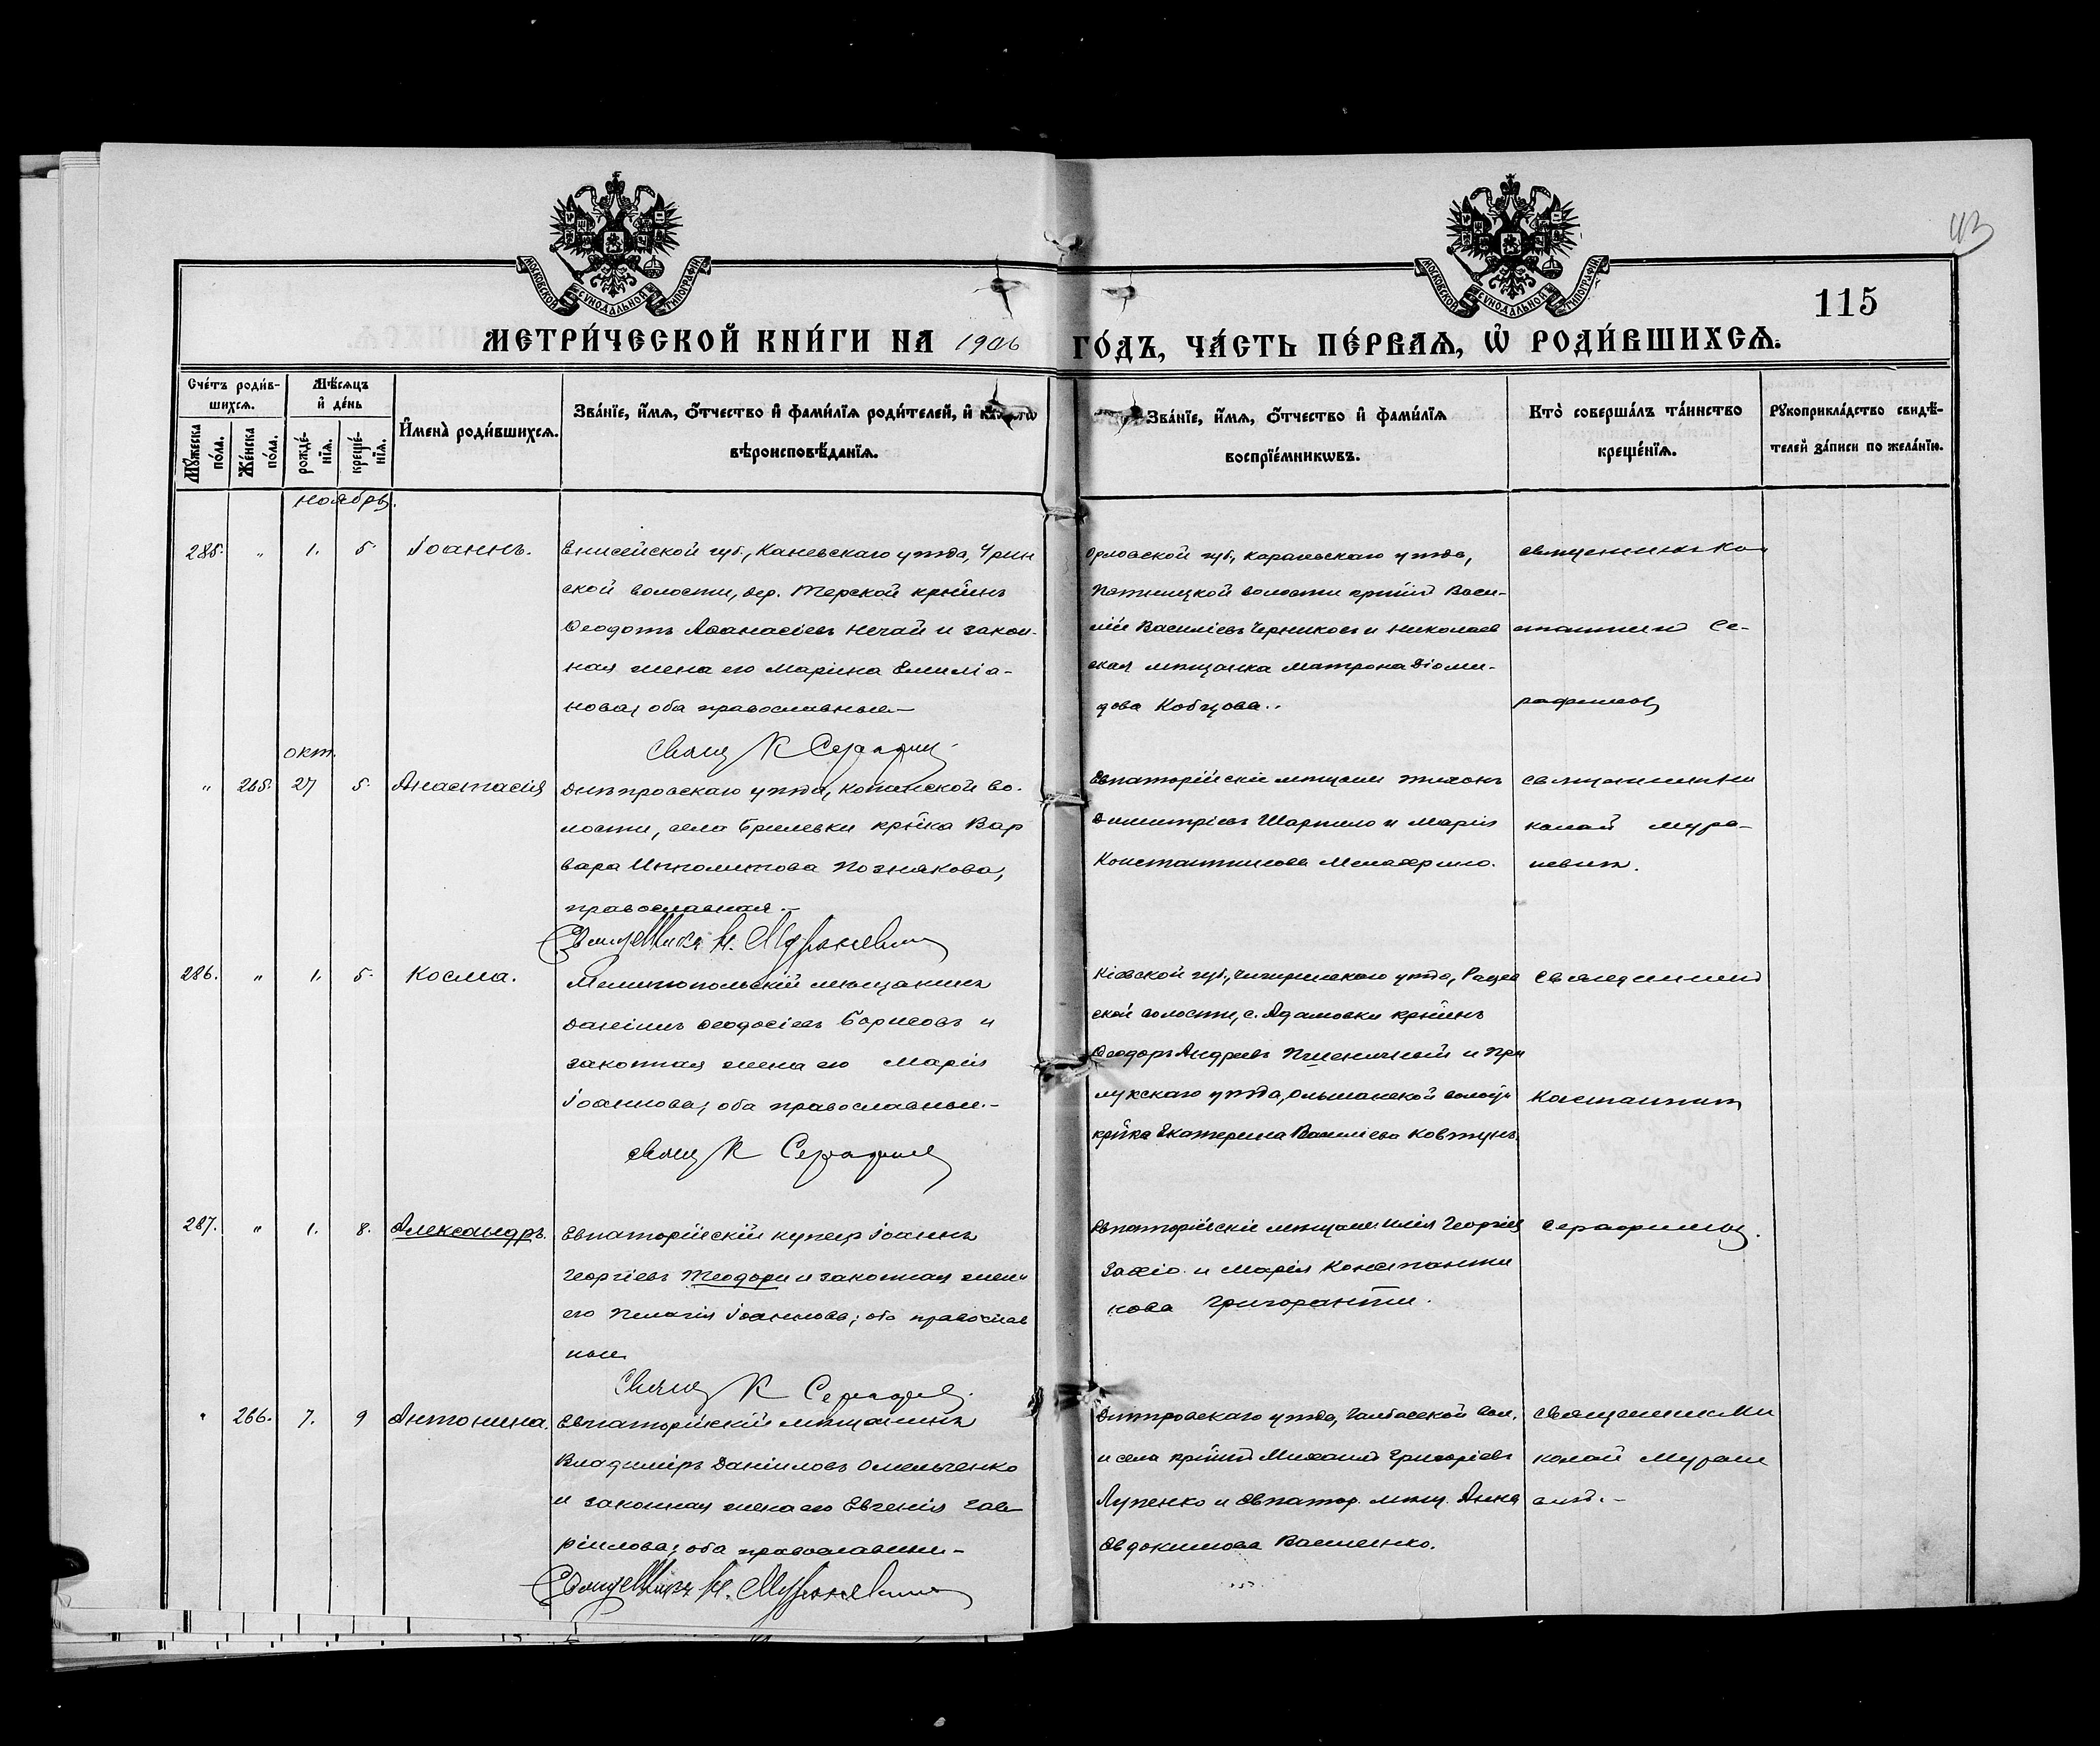 МОСКОВСКОЙ СѴНОДАЛЬНОЙ ТИПОГРАФІИ
МОСКОВСКОЙ СѴНОДАЛЬНОЙ ТИПОГРАФІИ
115
МЕТРИ́ЧЕСКОЙ КНИ́ГИ НА 1906 ГО́ДЪ, ЧА́СТЬ ПЕ́РВАѦ, Ѽ РОДИ́ВШИХСѦ.
Сче́тъ роди́в-
шихсѧ.
Мꙋ́жеска по́ла.
Же́нска по́ла.
Мѣ́сѧцъ
и҆ де́нь
рожде́-
нїѧ.
креще́-
нїѧ.
И҆мена̀ роди́вшихсѧ.
Зва́нїе, и҆́мѧ, ѻ҆́тчество и҆ фами́лїѧ роди́телей, и҆
вѣроисповѣ́данїѧ.
Зва́нїе, и҆́мѧ, ѻ҆́тчество и҆ фами́лїѧ
воспрїе́мникѡвъ.
Кто̀ соверша́лъ та́инство
креще́нїѧ.
Рꙋкоприкла́дство свидѣ́-
телей за́писи по жела́нїю.
ноябрь.
285. " 1. 5. Іоаннъ.
Енисейской губ., Каневскаго уѣзда,
ской волости, дер. Терской кр-нинъ
Ѳеодотъ Аѳанасіевъ Нечай и закон-
ная жена его Марина Емиліа-
нова, оба православные.-
Свящ К Серафим
Орловской губ., Карачевскаго уѣзда,
Пятницкой волости кр-нинъ Васи-
лій Василіевъ Черниковъ и Николаев
ская мѣщанка Матрона Діоми-
дова Кобцова.
Священникъ Кон
стантинъ Се-
рафимовъ
окт.
" 265. 27 5. Анастасія
Днѣпровскаго уѣзда, Копанской во-
лости, села Брилевки кр-нка Вар
вара Ипполитова Познякова,
православная.-
Священникъ Н. Мураневичъ
Евпаторійскіе мѣщане Тихонъ
Димитріевъ Шарпило и Марія
Константинова
Священникъ Ни
колай Мура-
невичъ.
286. " 1. 5. Косма.
Мелитопольскій мѣщанинъ
Даніилъ Ѳеодосіевъ Борисовъ и
законная жена его Марія
Іоаннова, оба православные.-
Свящ К Серафимов
Кіевской губ., Чигиринскаго уѣзда, Рацев
ской волости, с. Адамовки кр-нинъ
Ѳеодоръ Андреевъ Пшеничный и При
лукскаго уѣзда, Ольшанской волости
кр-нка Екатерина Василіева Ковтунъ.
Священникъ
Константинъ
287. " 1. 8. Александръ.
Евпаторійскій купецъ Іоаннъ
Георгіевъ Теодори и законная жена
его Пелагія Іоаннова; оба православ
ные
Свящ К Серафимов.
Евпаторійскіе мѣщане Илія Георгіев
и Марія Константи
нова Григоранти.
Серафимовъ.
" 266. 7. 9 Антонина.
Евпаторійскій мѣщанинъ
Владиміръ Даніиловъ Омельченко
и законная жена его Евгенія Гав
ріилова; оба православные-
Священникъ Н. Мураневичъ
Днѣпровскаго уѣзда, вол.
и села кр-нинъ Михаилъ Григоріевъ
Лупенко и Евпатор. мѣщ. Анна
Евдокимова Василенко.
Священникъ Ни
колай Муране
вичъ.-